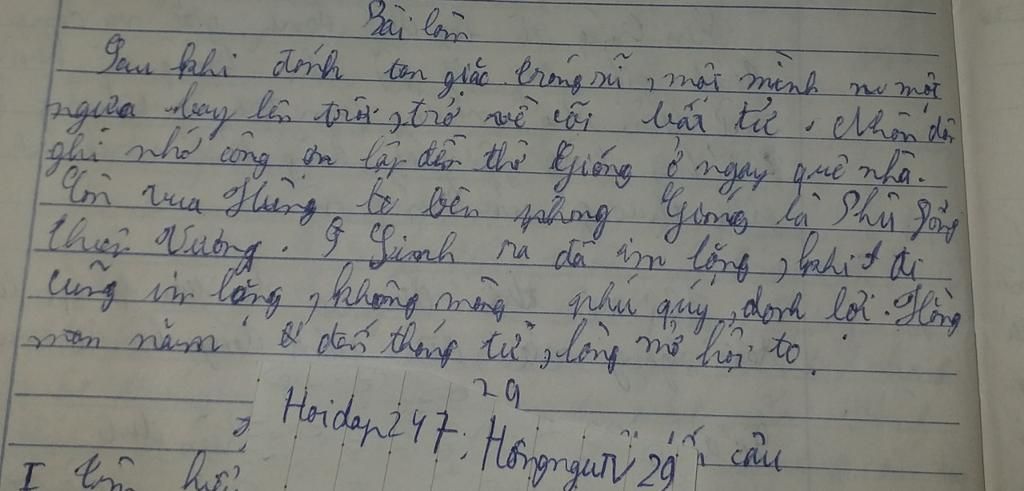 Bài làm
Sau khi đánh tan giặc trong xã, một mình một
ngựa bay lên trời, trở về cõi bất tử. Nhân dân
ghi nhớ công ơn lập đền thờ Gióng ở ngay quê nhà.
Còn vua Hùng to phong Gióng là Phù Đổng
thiên Vương. Sinh ra đã im lặng, khi đi
cũng im lặng, không màng phú quý, danh lợi. Hằng
năm đến tháng tư, làng mở hội to.
29
Hoidap247: Hongngu 29 câu
I